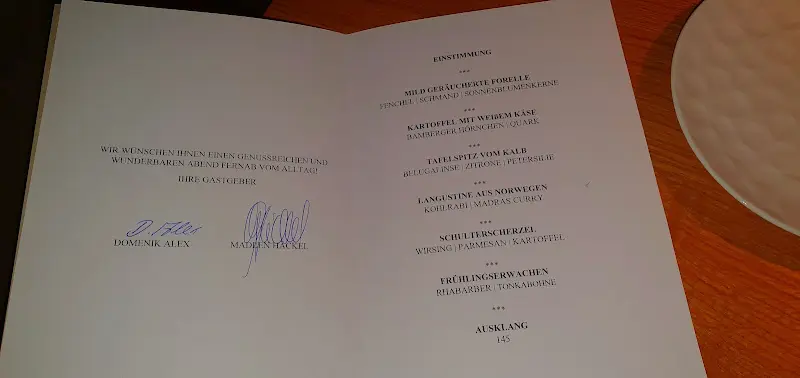 WIR WÜNSCHEN IHNEN EINEN GENUSSREICHEN UND
WUNDERBAREN ABEND FERNAB VOM ALLTAG!
IHRE GASTGEBER
D. Alex
DOMENIK ALEX
MADLEN HÄCKEL
EINSTIMMUNG
***
MILD GERÄUCHERTE FORELLE
FENCHEL | SCHMAND | SONNENBLUMENKERNE
***
KARTOFFEL MIT WEIßEM KÄSE
BAMBERGER HÖRNCHEN | QUARK
***
TAFELSPITZ VOM KALB
BELUGALINSE | ZITRONE | PETERSILIE
***
LANGUSTINE AUS NORWEGEN
KOHLRABI | MADRAS CURRY
***
SCHULTERSCHERZEL
WIRSING | PARMESAN | KARTOFFEL
***
FRÜHLINGSERWACHEN
RHABARBER | TONKABOHNE
***
AUSKLANG
145